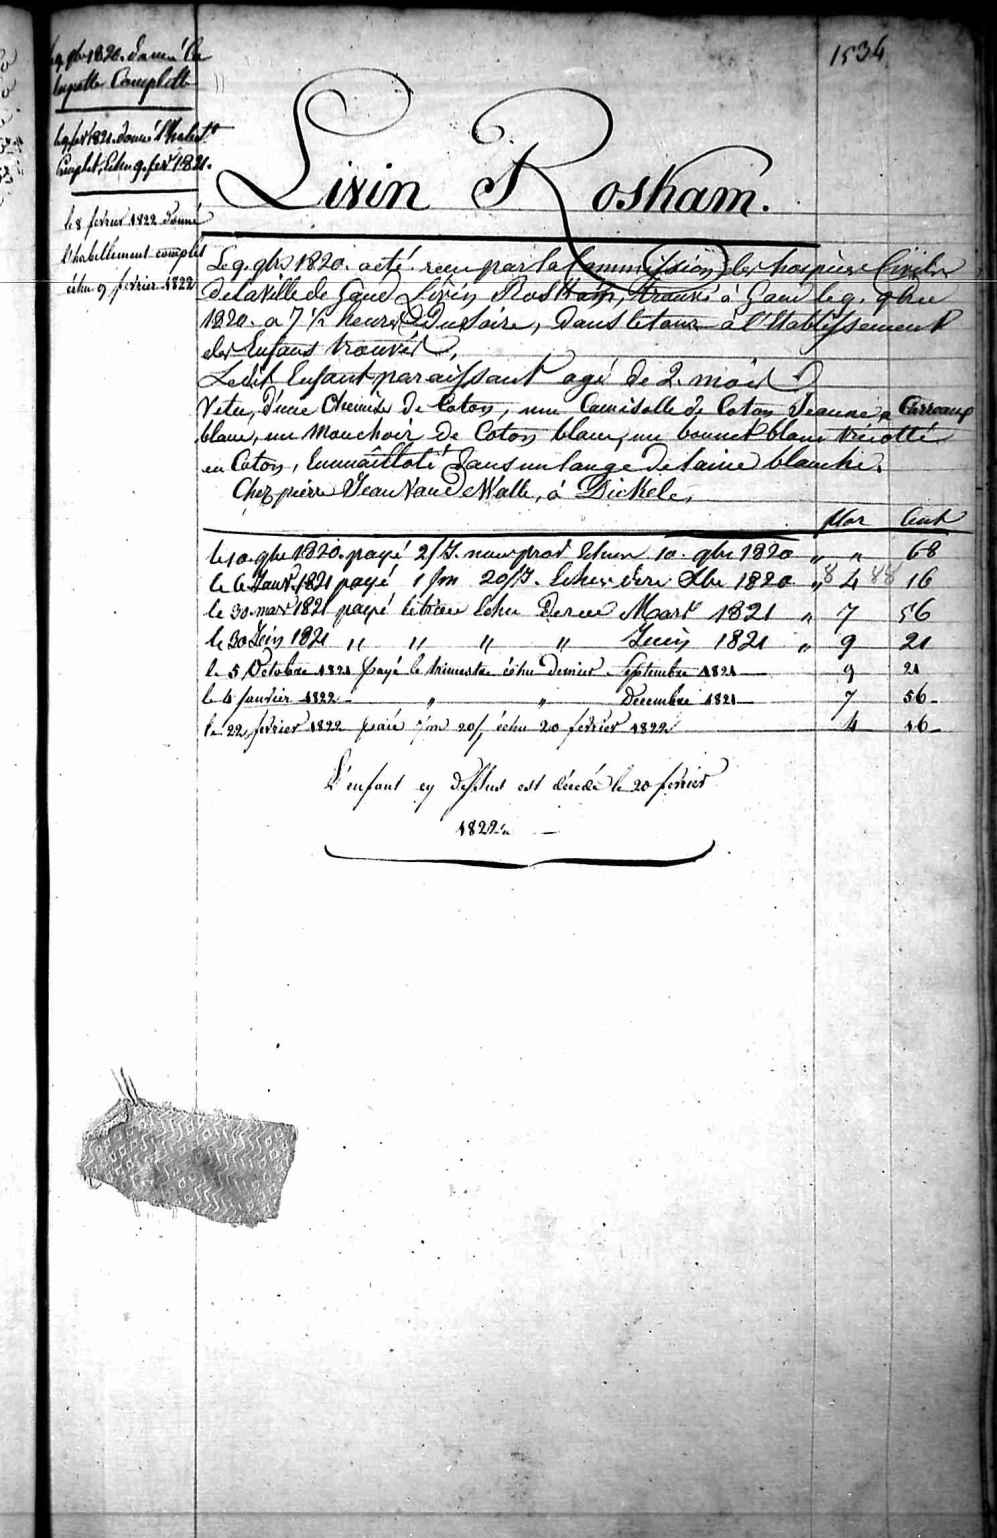 1534
Le 9 gbr 1820. donné la
layette Complette
le 9 fev 1821. donné l'habt
Complet, Echu 9. fev 1821.
le 8 fevrier 1822 donné
l'habellement complet
échu 9 fevrier 1822
Livin Rosham.
Le 9. gbre 1820. acté recu par la Commission des hospices Civils
de la Ville de Gand Livin Rosham, trouvé à Gand le 9. gbre
1820. a 7 ½ heures du Soire, dans le tour à l'Etablissement
des Enfans trouvés,
Ledit Enfant paraissant agé de 2. mois
Vetu, d'une Chemise de Coton, une Camisolle de Coton Jeaune, a Carreaux
blanc, un Mouchoir de Coton blanc, un bonnet blanc tricotté
en Coton, Emmaittoté dans un lange de laine blanche.
Chez pierre Jean Van de Walle, à Dickele,
flor Cent
le 10. gbre 1820. payé 2/J. nour prov Echus 10. gbre 1820 " " 68
le 6 Janv. 1821 payé 1 fm 20/J. Echus dere Xbr 1820. " 4 16
8 88
le 30. mars 1821 payé le trime Echu dernier Mars 1821 " 7 56
le 30 Juin 1821 " " " " Juin 1821 " 9 21
le 5 Octobre 1821 Payé le trimestre échu dernier Septembre 1821 9 21
le 4 Janvier 1822 - " " Decembre 1821 7 56-
le 22, fevrier 1822 paié 1/m 20/ échu 20 fevrier 1822 4 16-
L'enfant cy dessus est décédé le 20 fevrier
1822. -